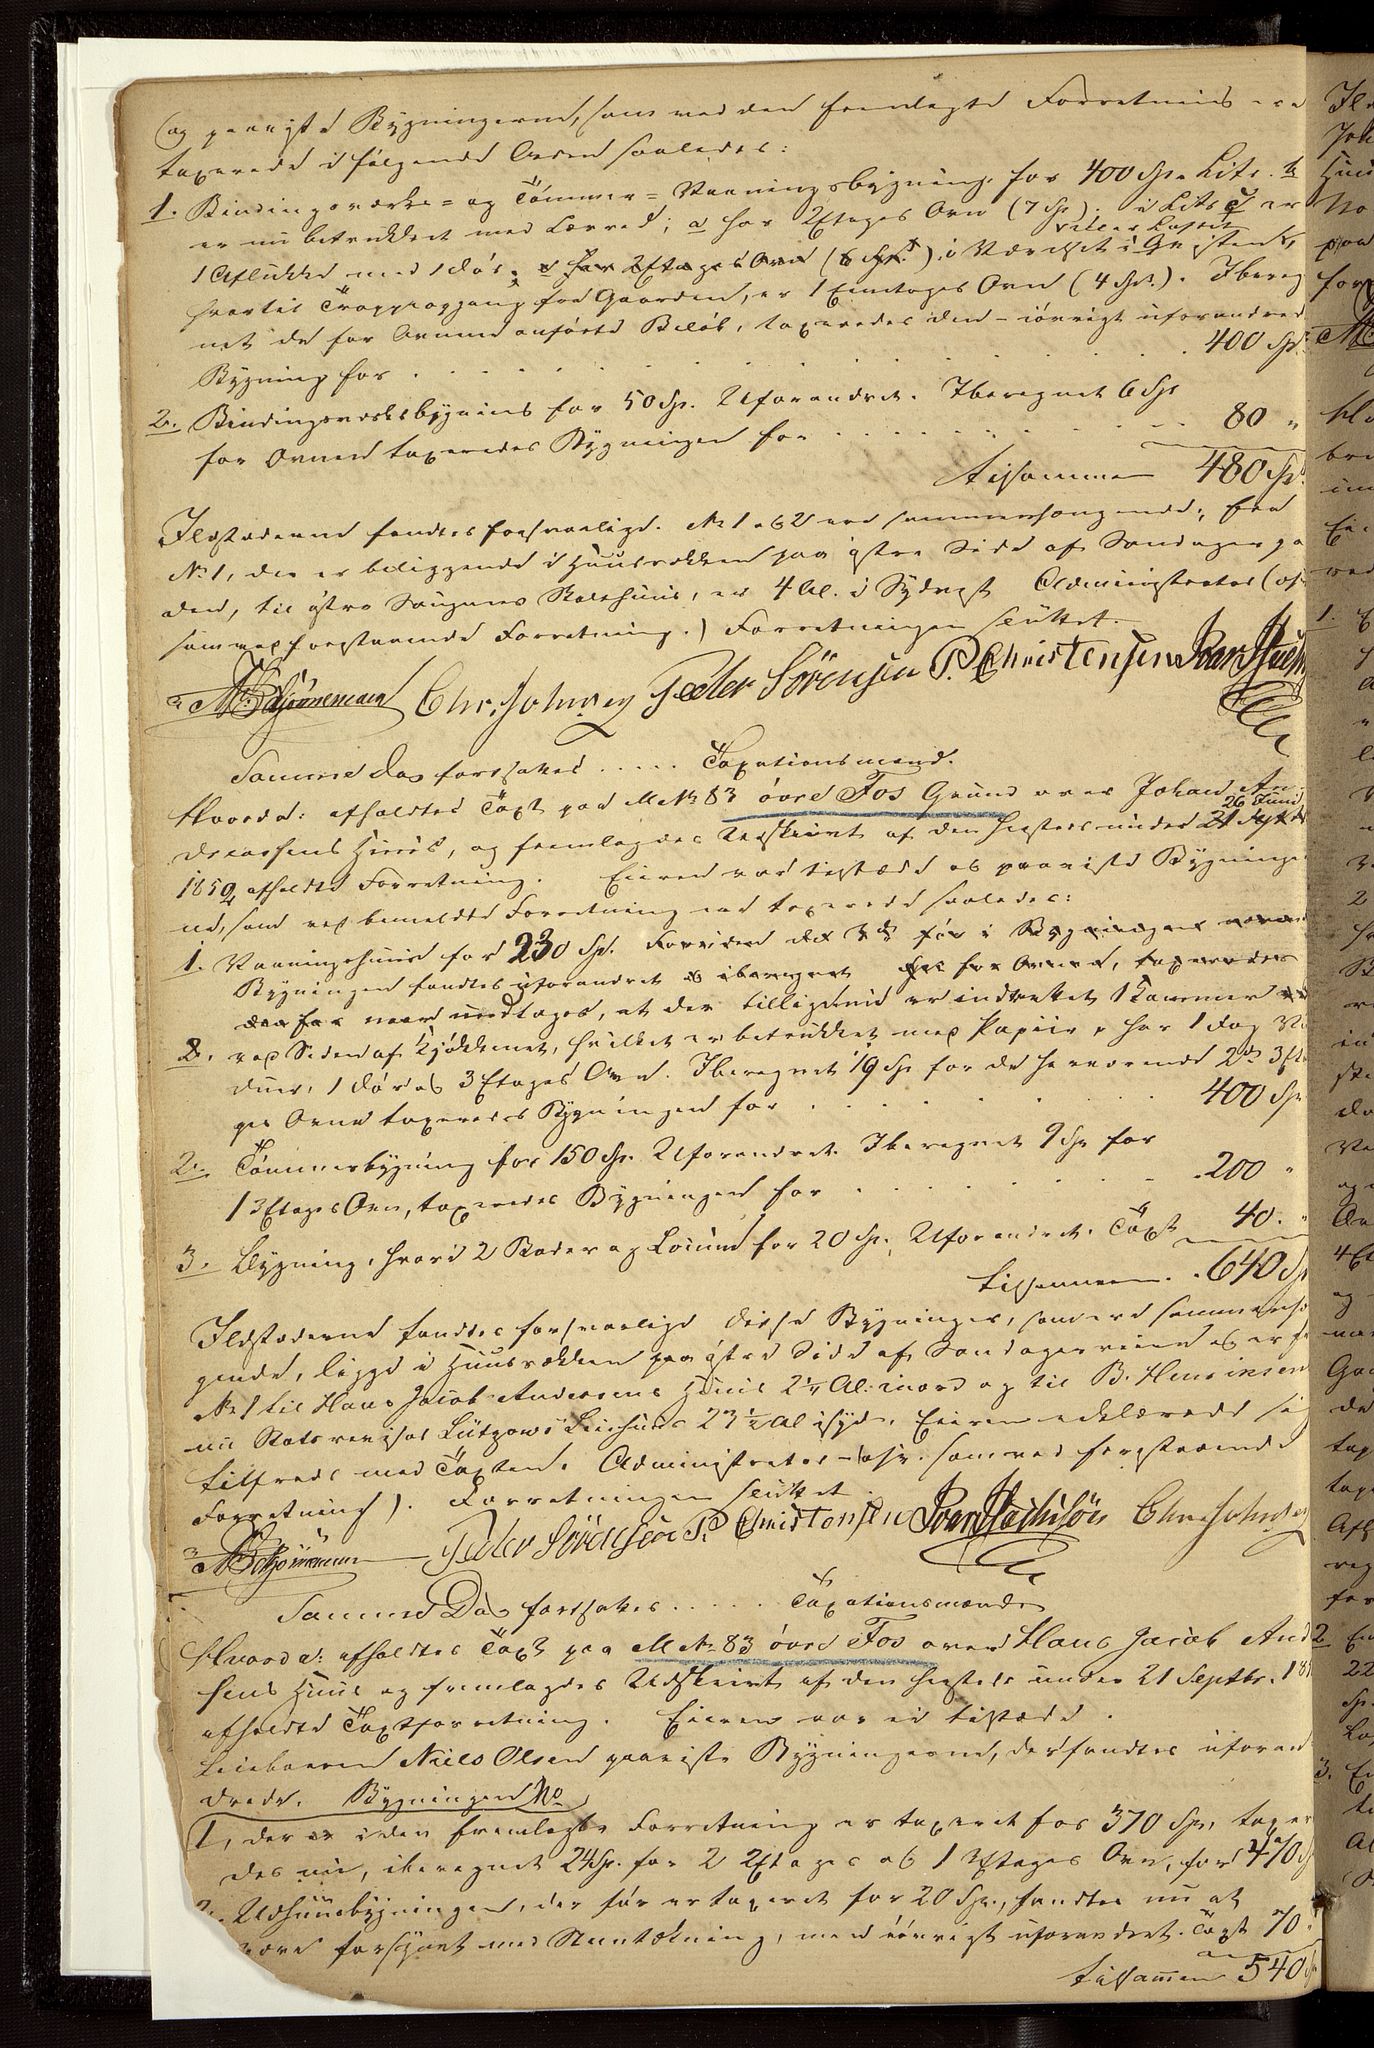 og paaviste Bygningerne, som ved den fremlagte Forretning ere
taxerede i følgende Orden saaledes:
1. Bindingsværks= og Tømmer=Vaaningsbygning, for 400 Sp. Litr. b
er nu betrukket med Lærred; a har 2 Etages Ovn (7 Sp). i Litr d er
1 Aflukke med 1 Dør. i Værelset i
hvortil Trappeopgang fra Gaarden, er 1 Eenetages Ovn (4 Sp.). Ibereg
net de for Ovnene anførte Beløb, taxeredes den iøvrigt uforandrede
Bygning for . . . . . 400 Sp.
2. Bindingsværksbygning for 50 Sp. Uforandret. Iberegnet 6 Sp
for Ovnen taxeredes Bygningen for . . . . . 80 "
tilsammen 480 Sp.
Ildstæderne fandtes forsvarlige. No 1 og 2 ere sammenhængende; fra
No 1, der er beliggende i Huusrækken paa østre Side af
til østre Huus, er 4 Al. i Syd Administrator (osv
som ved foregaaende Forretning.) Forretningen sluttet.
Chr. Johnsen Peder Sörensen P. Christensen
Samme Dag fortsattes ..... Taxationsmænd.
Hvorda: afholdtes Taxt paa M No 83 øvre Fos Grund over Johan An
26 Juni
dreassens Huus, og fremlagdes Udskrivt af den hersteds under
1850 afholdte Forretning. Eieren var tilstæde og paaviste Bygninger
ne, som ved bemeldte Forretning ere taxerede saaledes:
1. Vaaningshuus for 230 Sp.
Bygningen fandtes uforandret
naar undtages, at der tilligemed er indrettet 1 Kammer
ved Siden af Kjøkkenet, hvilket er betrukket med Papiir, har 1 Fag Vin
duer, 1 Dør og 3 Etages Ovn. Iberegnet 19 Sp for de herværende 2de 3 Eta
ges Ovne taxeredes Bygningen for . . . . . 400 Sp
2. Tømmerbygning for 150 Sp. Uforandret. Iberegnet 9 Sp for
1 3 Etages Ovn, taxeredes Bygningen for . . . . . 200 "
3. Bygning, hvori 2 Boder og Locum for 20 Sp. Uforandret. Taxt 40. "
tilsammen . 640 Sp
Ildstæderne fandtes forsvarlige. Disse Bygninger, som ere sammenhæn
gende, ligge i Huusrækken paa østre Side af og er fra
No 1 til Hans Jacob Andersens Huus 2 1/4 Al: i nord og til B. Henriksen
nu Lützows Huus 23 1/2 Al i syd. Eieren erklærede sig
tilfreds med Taxten. Administrator (osv. som ved foregaaende
Forretning). Forretningen sluttet.
Peder Sörensen P. Christensen Chr. Johnsen
Samme Dag fortsattes ..... Taxationsmænd
Hvorda: afholdtes Taxt paa M No 83 øvre Fos over Hans Jacob And
sens Huus og fremlagdes Udskrivt af den hersteds under 21 Septbr. 18
afholdte Taxtforretning. Eieren var ei tilstæde.
Leieboeren Niels Olsen paaviste Bygningerne, der fandtes uforan
drede. Bygningen No
1, der i den fremlagte Forretning er taxeret for 370 Sp, taxere
des nu, iberegnet 24 Sp. for 2 2 Etages og 1 Etages Ovn, for 470 Sp
2. Udhuusbygningen, der før er taxeret for 20 Sp., fandtes nu at
være forsynet med Steentækning, men iøvrigt uforandret. Taxt 70 "
tilsammen 540 Sp